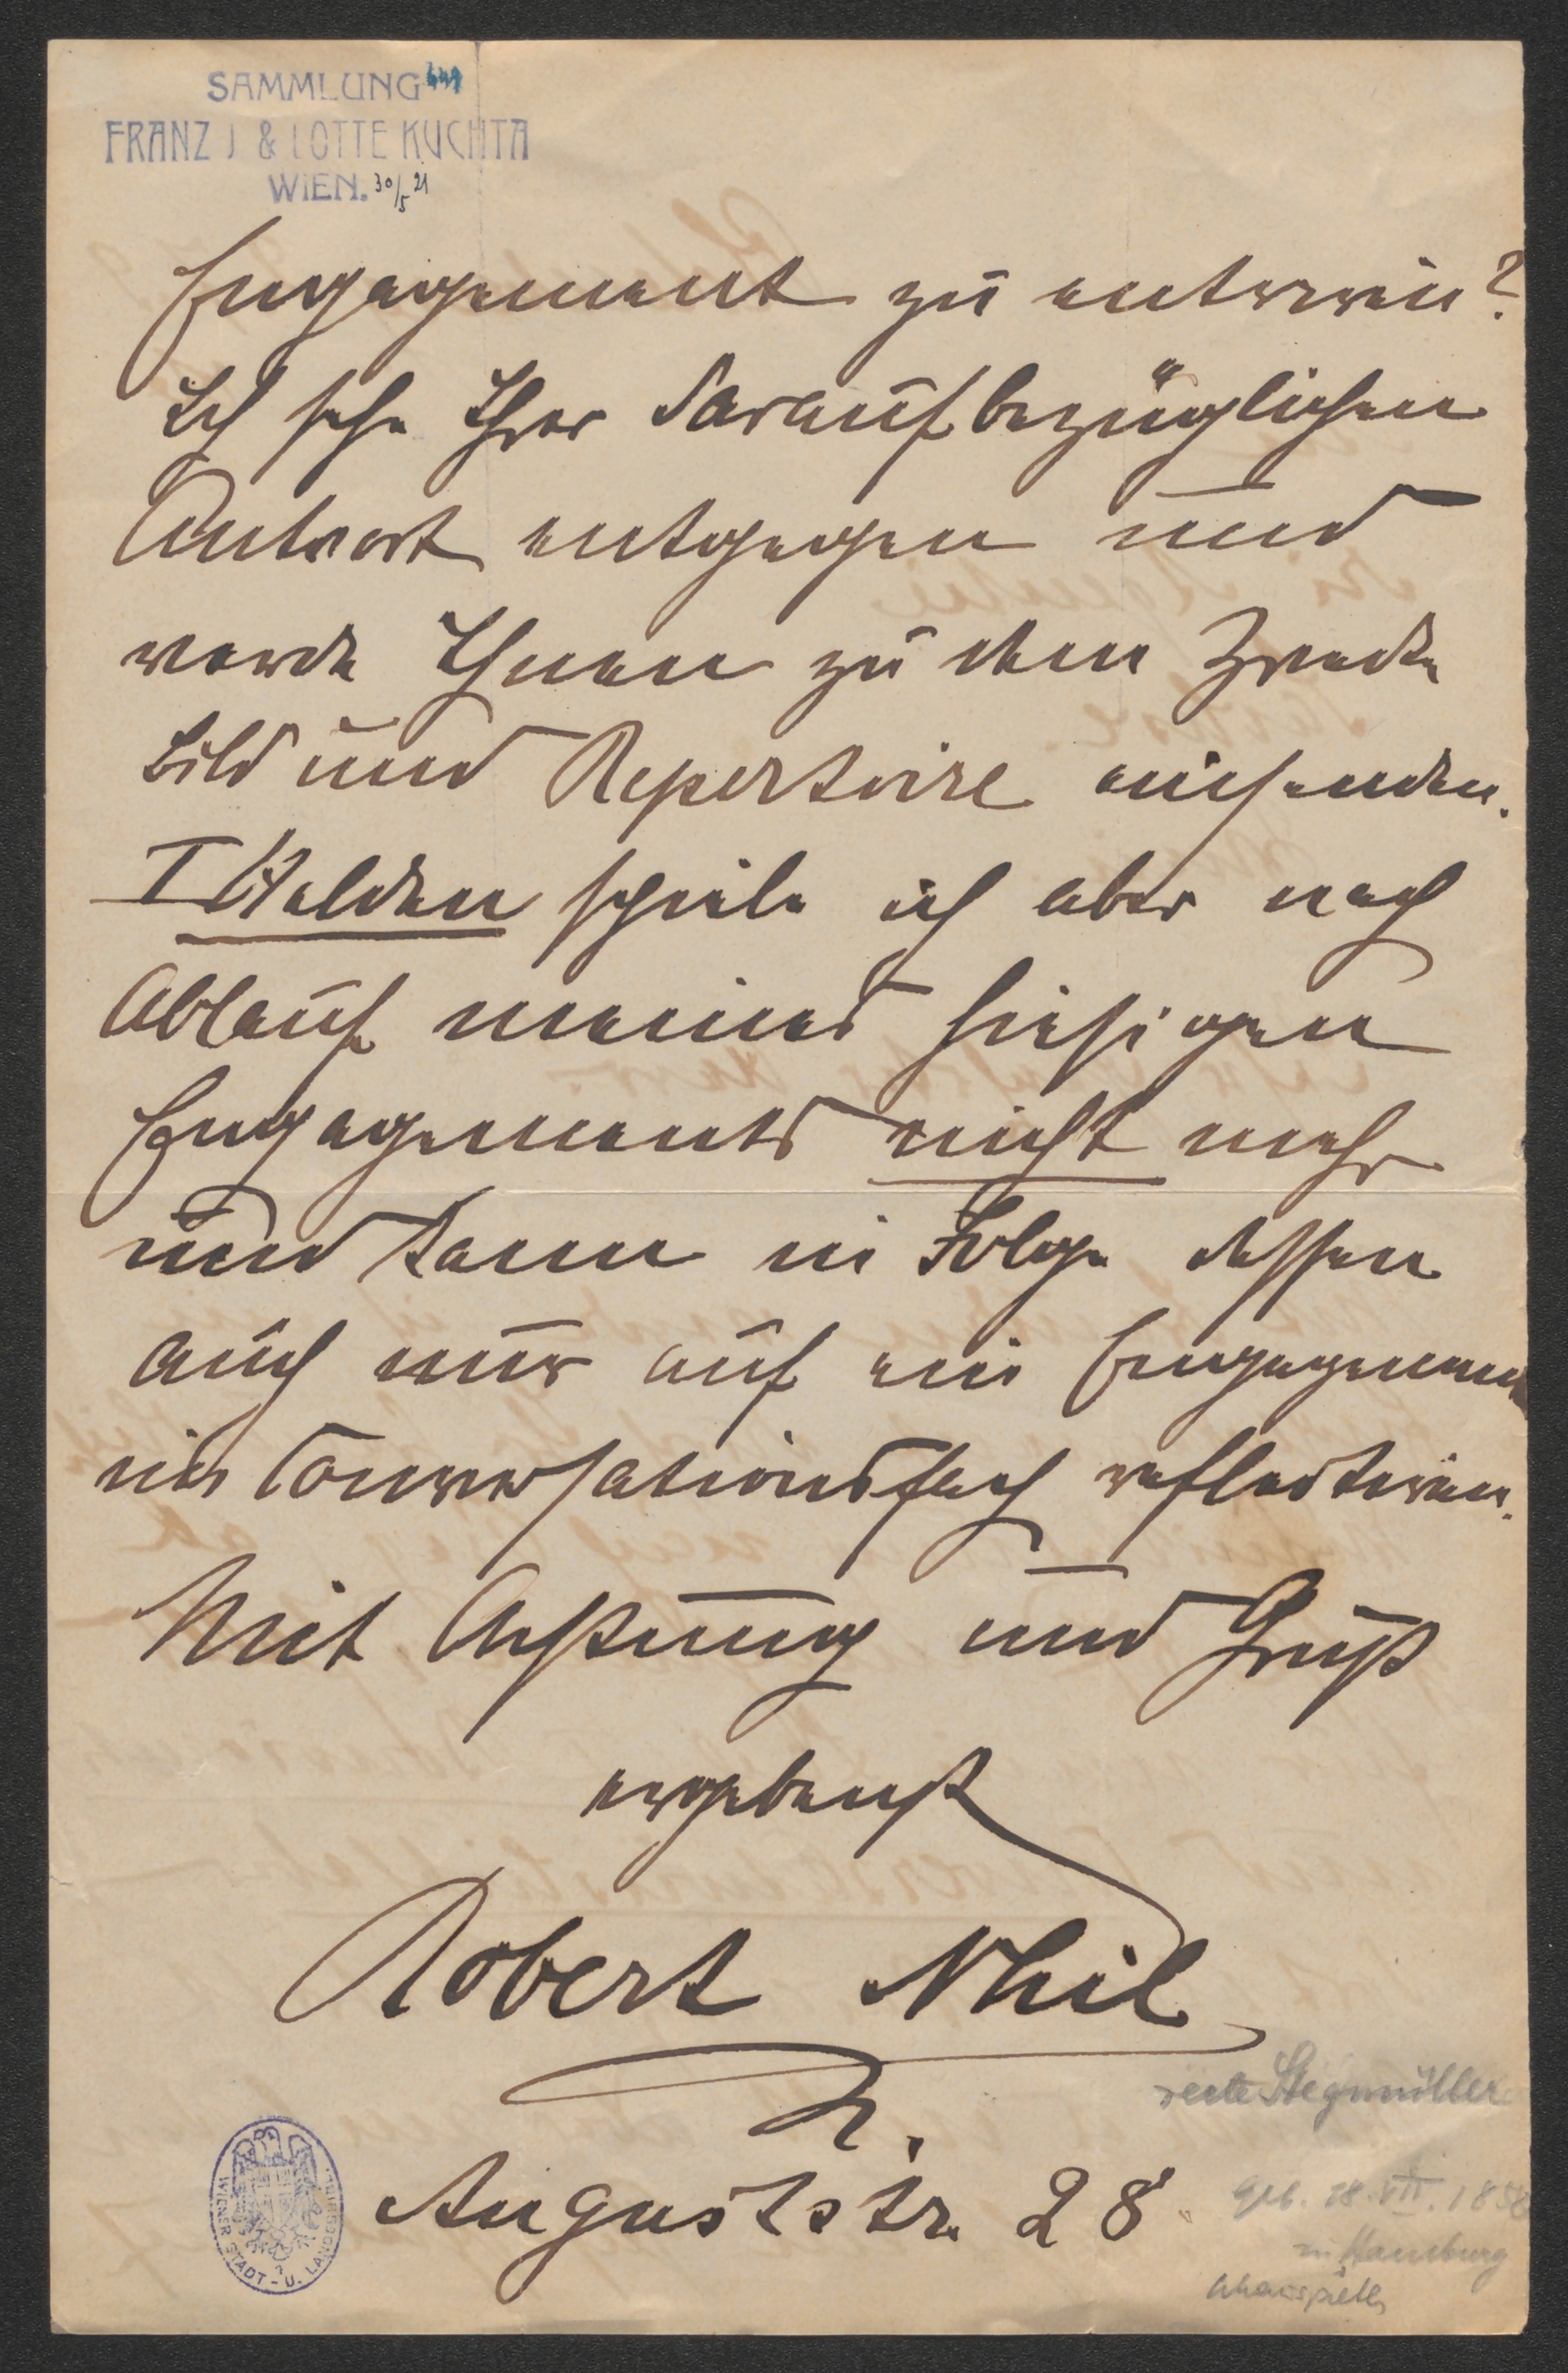 SAMMLUNG 649
FRANZ J & LOTTE KUCHTA
WIEN. 30/5 21
Engagement zu entriren?
Ich sehe Ihrer daraufbezüglichen
Antwort entgegen und
werde Ihnen zu dem Zwecke
Bild und Repertoire einsenden.
I Helden spiele ich aber nach
Ablauf meines hiesigen
Engagements nicht mehr
und kann in Folge dessen
auch nur auf ein Engagement
im Conversationsfach reflectiren.
Mit Achtung und Gruß
ergebenst
Robert Nhil
Auguststr. 28.
recte Stegmüller
geb. 28. VII. 1858
in Hamburg
Schauspieler
WIENER STADT- U. LANDESBIBL.